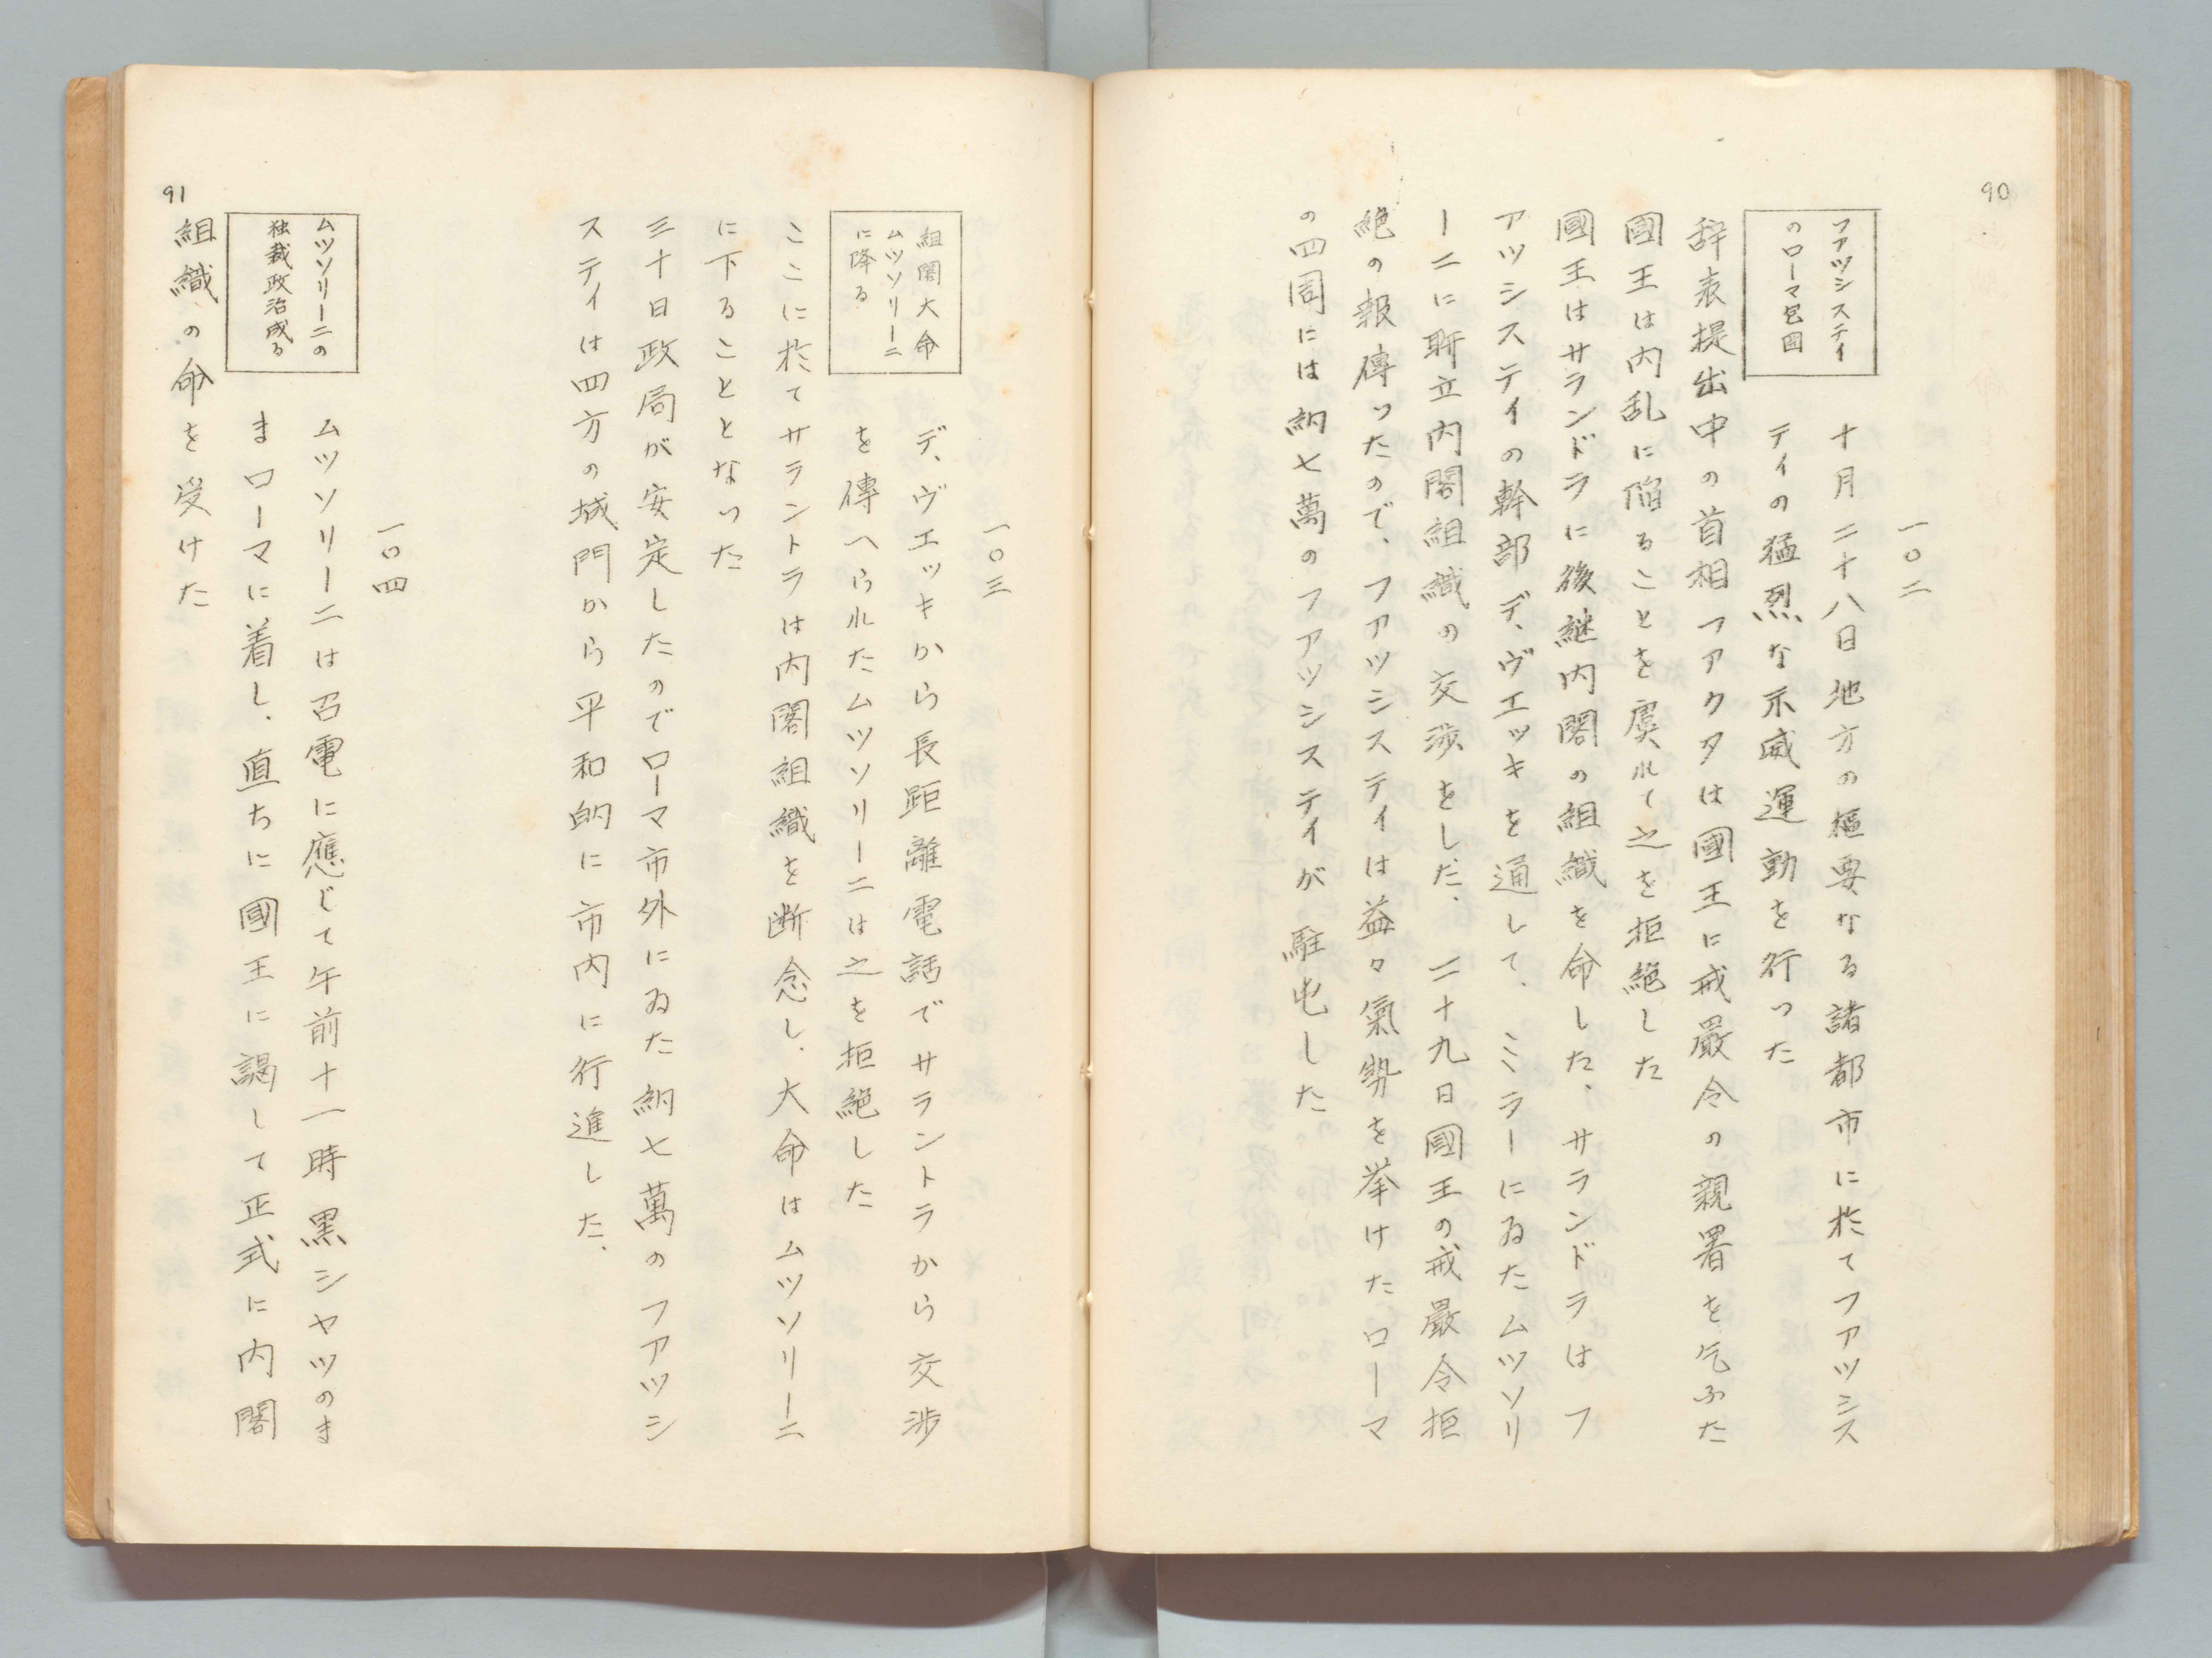 90
一〇二
ファツシステイ
のローマ包囲
十月二十八日地方の樞要なる諸都市に於てファツシス
テイの猛烈な示威運動を行った
辞表提出中の首相ファクタは國王に戒嚴令の親署を乞ふた
國王は内乱に陥ることを虞れて之を拒絶した
國王はサランドラに後継内閣の組織を命した、サランドラはフ
アツシステイの幹部デ、ヴエッキを通して、ミラーにゐたムツソリ
ーニに聯立内閣組織の交渉をした、二十九日國王の戒嚴令拒
絶の報傳ったので、ファツシステイは益々氣勢を挙けたローマ
の四周には納七萬のフアツシステイが駐屯した
一〇三
組閣大命
ムツソリーニ
に降る
デ、ヴエッキから長距離電話でサラントラから交渉
を傳へられたムツソリーニは之を拒絶した
ここに於てサラントラは内閣組織を断念し、大命はムツソリーニ
に下ることとなった
三十日政局が安定したのでローマ市外にゐた納七萬のフアツシ
ステイは四方の城門から平和的に市内に行進した、
一〇四
ムツソリーニの
独裁政治成る
ムツソリーニは召電に應じて午前十一時黒シヤツのま
まローマに着し、直ちに國王に謁して正式に内閣
組織の命を受けた
91